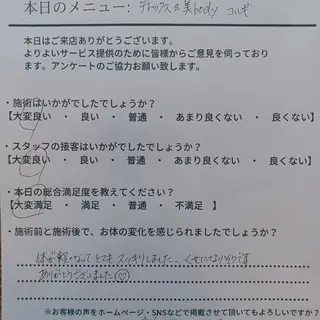 本日のメニュー: デトックス&美body コルギ
本日はご来店ありがとうございます。
よりよいサービス提供のために皆様からご意見を伺っており
ます。アンケートのご協力お願い致します。
・施術はいかがでしたでしょうか？
【大変良い ・ 良い ・ 普通 ・ あまり良くない ・ 良くない】
・スタッフの接客はいかがでしたでしょうか？
【大変良い ・ 良い ・ 普通 ・ あまり良くない ・ 良くない】
・本日の総合満足度を教えてください？
【大変満足 ・ 満足 ・ 普通 ・ 不満足 】
・施術前と施術後で、お体の変化を感じられましたでしょうか？
体が軽くなって とても スッキリしました、くせになりそうです
ありがとうございました
※お客様の声をホームページ・SNSなどで掲載させて頂いてもよろしいですか？